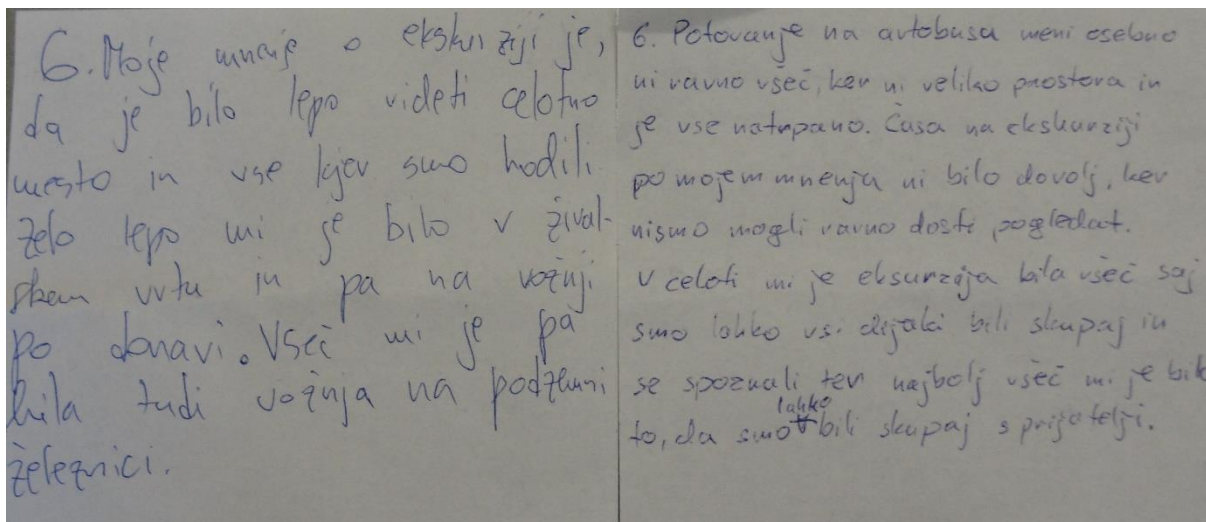 6. Moje mnenje o ekskurziji je,
da je bilo lepo videti celotno
mesto in vse kjer smo hodili.
Zelo lepo mi je bilo v žival-
skem vrtu in pa na vožnji
po donavi. Všeč mi je pa
bila tudi vožnja na podzemni
železnici.
6. Potovanje na avtobusa meni osebno
ni ravno všeč, ker ni veliko prostora in
je vse natrpano. Časa na ekskurziji
po mojem mnenja ni bilo dovolj, ker
nismo mogli ravno dosti pogledat.
V celoti mi je eksurzija bila všeč saj
smo lahko vsi dijaki bili skupaj in
se spoznali ter najbolj všeč mi je bilo
to, da smo lahko bili skupaj s prijatelji.